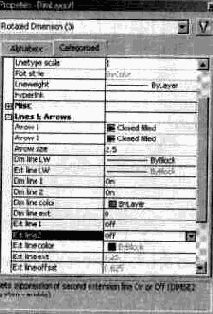 Rotated Dimension (3)
Alphabetic Categorized
Linetype scale 1
Plot style ByColor
Lineweight ByLayer
Hyperlink
Misc
Lines & Arrows
Arrow 1 Closed filled
Arrow 2 Closed filled
Arrow size
Dim line LW ByBlock
Ext line LW ByBlock
Dim line 1 On
Dim line 2 On
Dim line color ByLayer
Dim line ext 0
Ext line 1 off
Ext line 2 off
Ext line color ByBlock
Ext line ext
Ext line offset
suppression of second extension line On or Off (DIMSE2